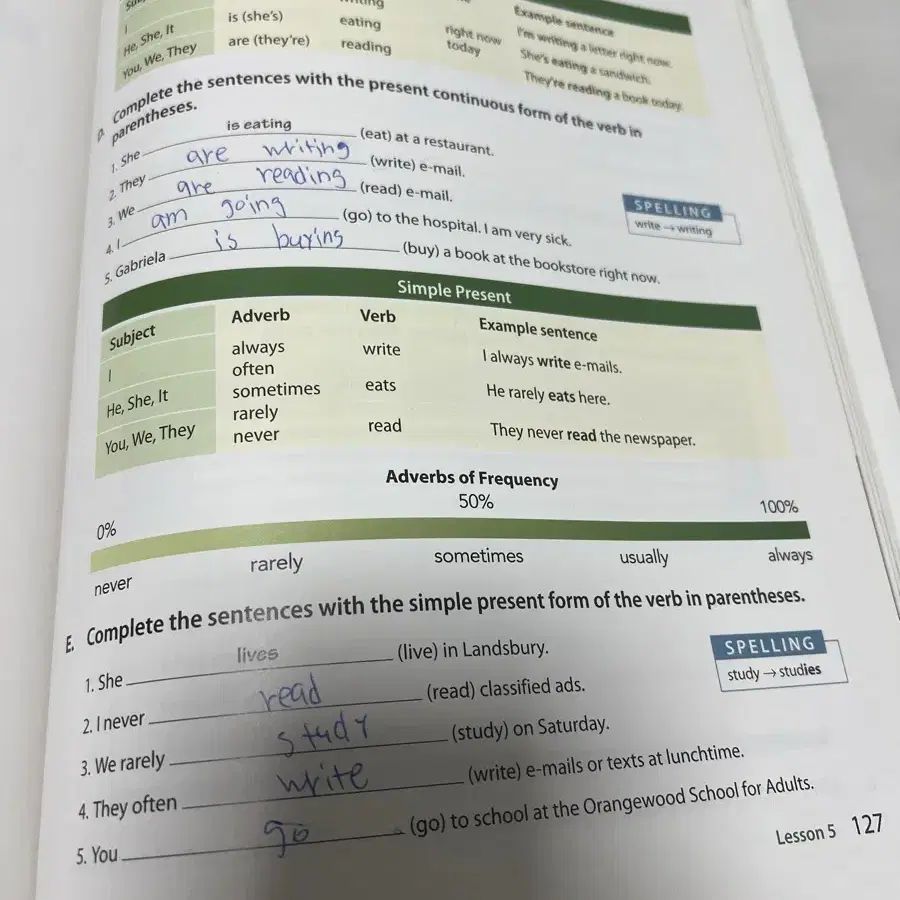 I
He, She, It
You, We, They
is (she's)
are (they're)
eating
reading
right now
today
Example sentence
I'm writing a letter right now.
She's eating a sandwich.
They're reading a book today.
D. Complete the sentences with the present continuous form of the verb in
parentheses.
1. She is eating (eat) at a restaurant.
2. They are writing (write) e-mail.
3. We are reading (read) e-mail.
4. I am going (go) to the hospital. I am very sick.
5. Gabriela is buying (buy) a book at the bookstore right now.
SPELLING
write → writing
Simple Present
Subject Adverb Verb Example sentence
I always write I always write e-mails.
often
He, She, It sometimes eats He rarely eats here.
rarely
You, We, They never read They never read the newspaper.
Adverbs of Frequency
0% 50% 100%
never rarely sometimes usually always
E. Complete the sentences with the simple present form of the verb in parentheses.
1. She lives (live) in Landsbury.
2. I never read (read) classified ads.
3. We rarely study (study) on Saturday.
4. They often write (write) e-mails or texts at lunchtime.
5. You go (go) to school at the Orangewood School for Adults.
SPELLING
study → studies
Lesson 5 127